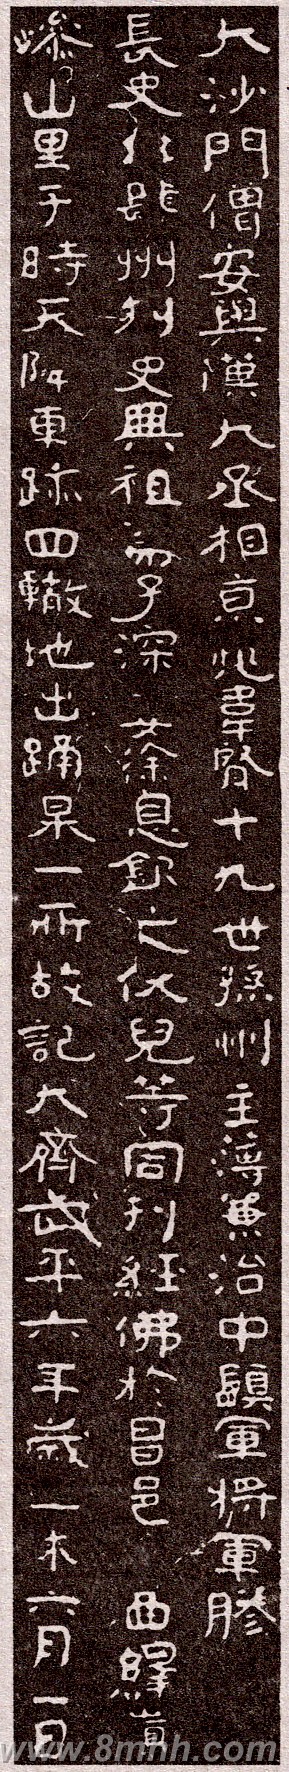 大沙門僧安與漢大丞相京兆韋賢十九世孫州主薄兼治中鎮軍將軍膠
長史州刾史興祖弟子深妻徐息欽之伏兒等同刊經佛於昌邑西繹嶺
山里于時天降車跡四轍地出踊泉一所故記大齊武平六年歲乙未六月一日
www.8mhh.com